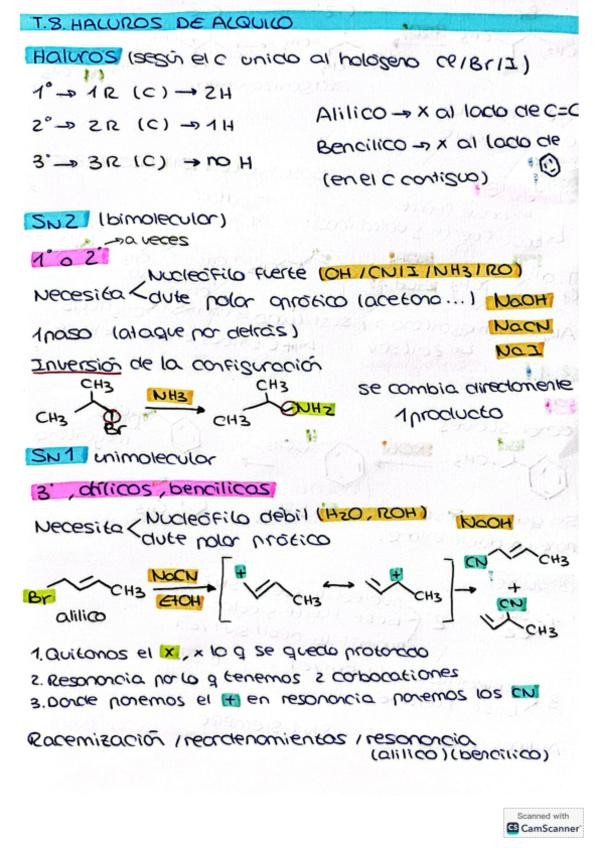 T.8. HALUROS DE ALQUILO
Haluros (según el c unido al halógeno Cl/Br/I)
1° → 1R (C) → 2H
2° → 2R (C) → 1H
3° → 3R (C) → no H
Alilico → X al lado de C=C
Bencilico → X al lado de
(en el C contiguo)
SN2 (bimolecular)
→ a veces
1° o 2°
Necesita < Nucleófilo fuerte (OH/CN/I/NH3/RO)
dvte polar aprótico (acetona...) NaOH
NaCN
NaI
1 paso (ataque por detrás)
Inversión de la configuración
CH3 CH3 Br NH3 CH3 CH3 NH2
se cambia directamente
1 producto
SN1 unimolecular
3°, alílicos, bencilicos
Necesita < Nucleófilo débil (H2O, ROH) NaOH
dvte polar prótico
Br CH3 NaCN EtOH + CH3 ↔ + CH3 → CN CH3
+
CN
CH3
alilico
1. Quitamos el X, x lo q se queda protonado
2. Resonancia por lo q tenemos 2 carbocationes
3. Donde ponemos el + en resonancia ponemos los CN
Racemización / reordenamientos / resonancia
(alilico) (bencilico)
Scanned with
CS CamScanner